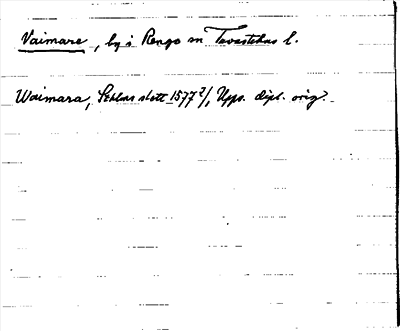 Vaimare, by i Rengo sn Tavastehus l.
Waimara, slott 1577 2/1, Upps. dipl. orig.